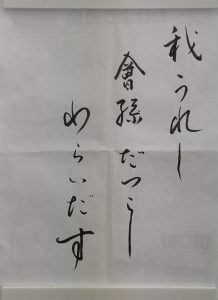 我うれし
會孫だつこし
わらいだす